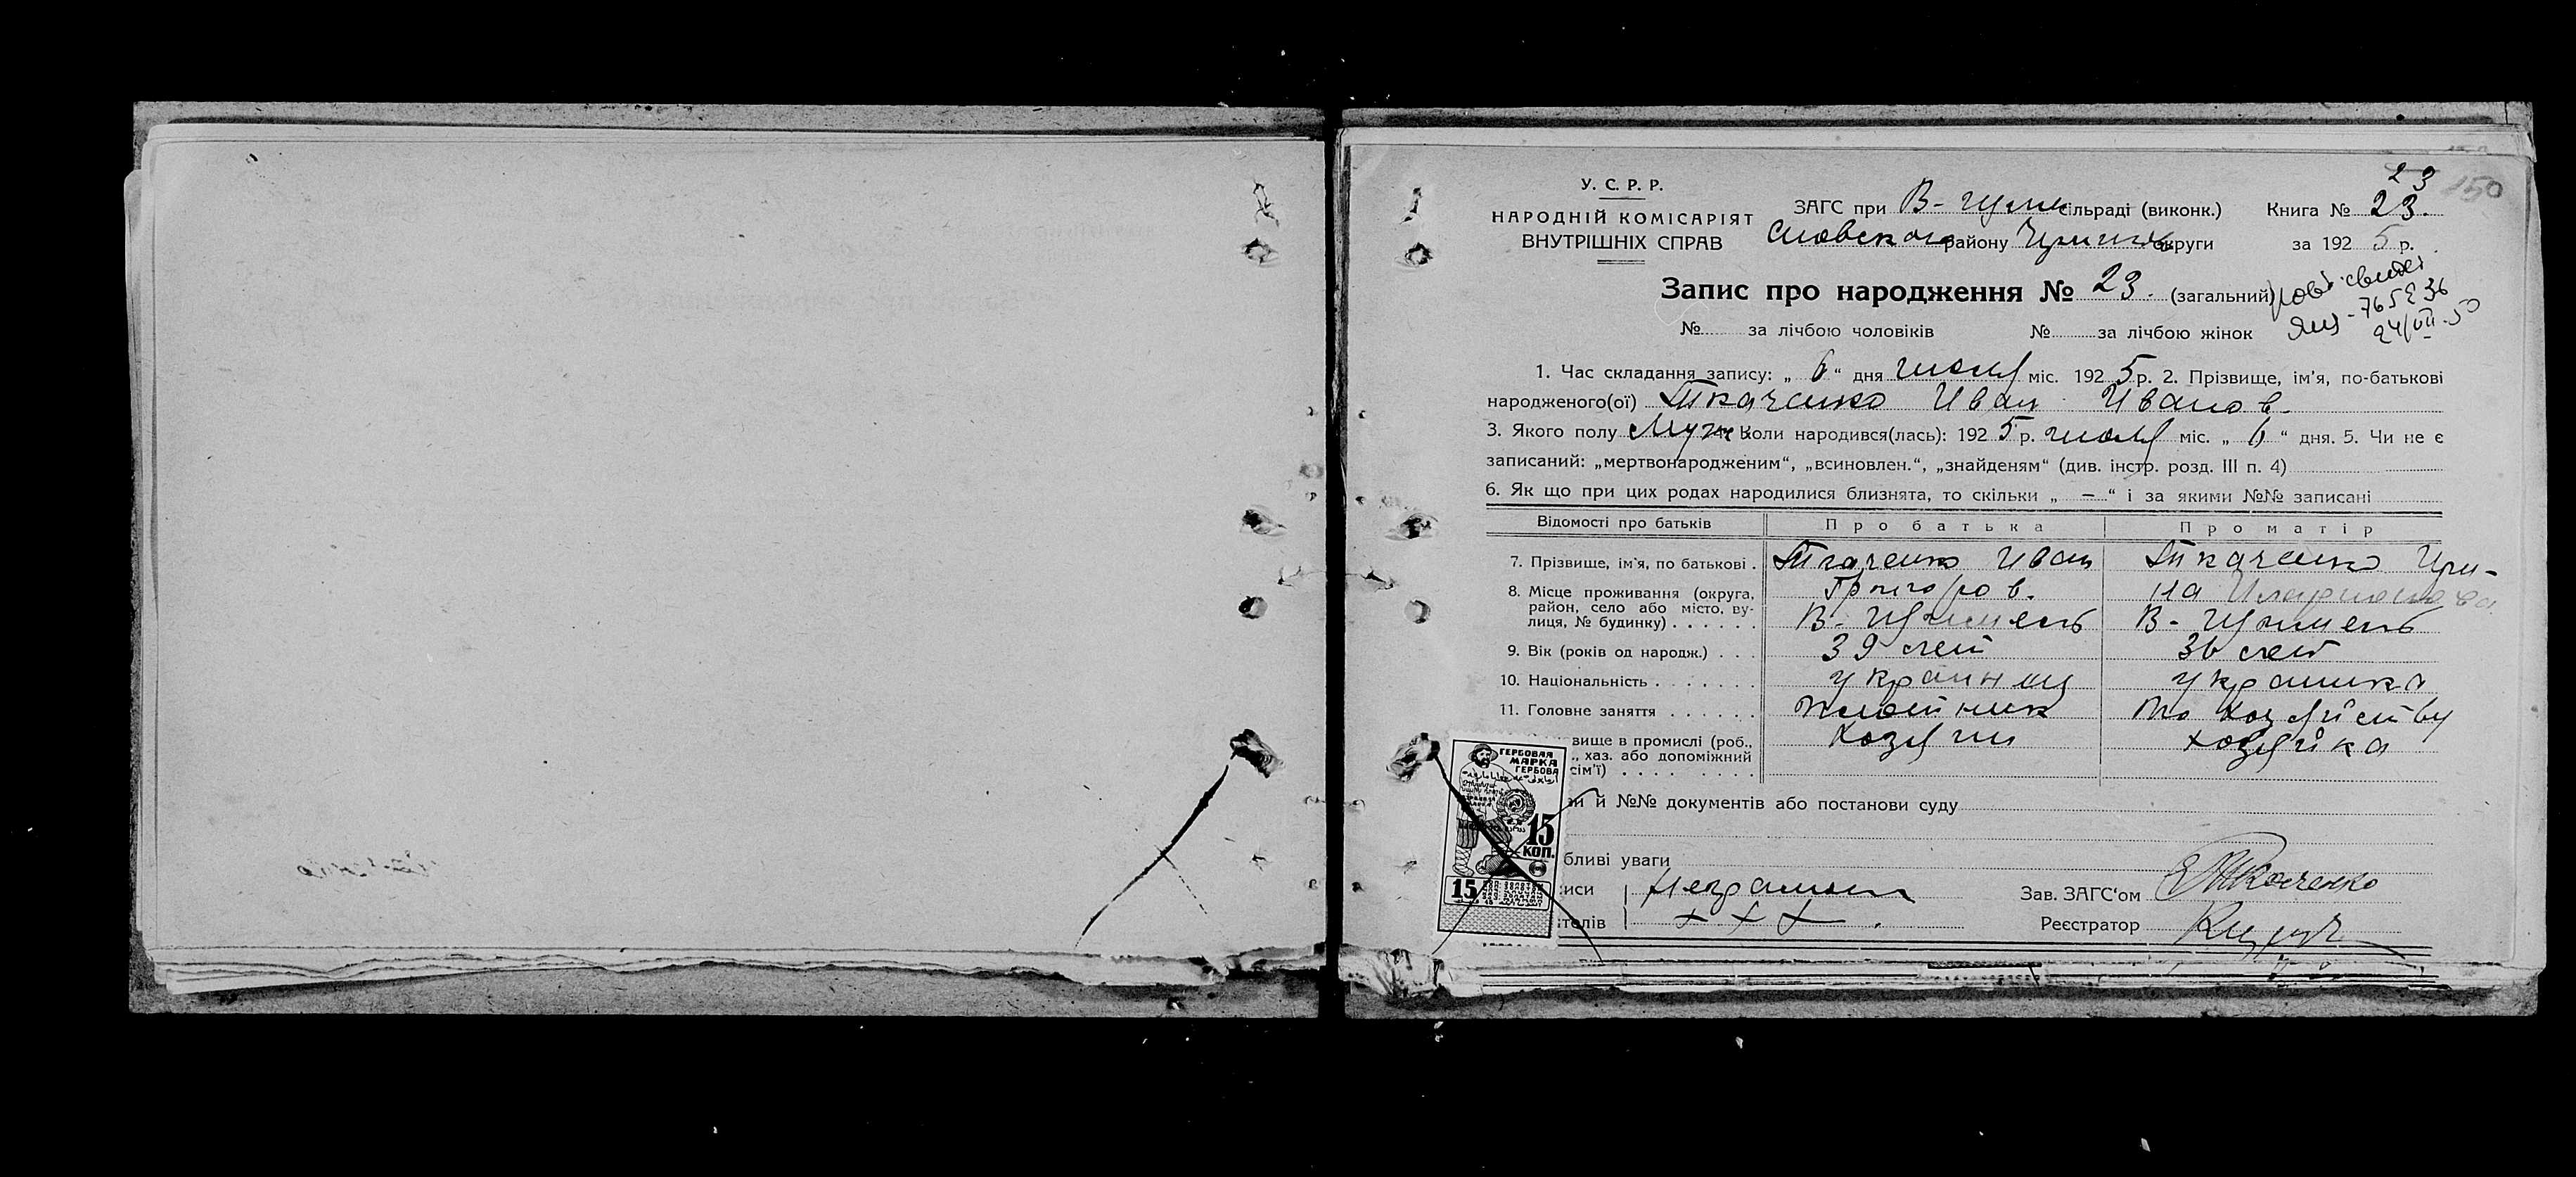 23
150
У. С. Р. Р.
НАРОДНІЙ КОМІСАРІЯТ
ВНУТРІШНІХ СПРАВ
ЗАГС при В- сільраді (виконк.) Книга № 23.
району округи за 1925 р.
Запис про народження № 23. (загальний)
24/VII-50
№ за лічбою чоловіків № за лічбою жінок
1. Час складання запису: „ 6 “ дня июля міс. 1925 р. 2. Прізвище, ім’я, по-батькові
народженого(ої) Ткаченко Иван Иванов.
3. Якого полу Муж Коли народився(лась): 1925 р. июля міс. „ 6 “ дня. 5. Чи не є
записаний: „мертвонародженим“, „всиновлен.“, „знайденям“ (див. інстр. розд. III п. 4)
6. Як що при цих родах народилися близнята, то скільки „ — “ і за якими №№ записані
Відомості про батьків Про батька Про матір
7. Прізвище, ім’я, по батькові . Ткаченко Иван Ткаченко Ири-
8. Місце проживання (округа, Григоров. на
район, село або місто, ву-
лиця, № будинку) . . . . . . В- В-
9. Вік (років од народж.) . . . 39 лет 36 лет
10. Національність . . . . . . . украинец украинка
11. Головне заняття . . . . . . Плотник По хозяйству
вище в промислі (роб., Хозяин хозяйка
., хаз. або допоміжний
сім’ї) . . . . . . . .
ви й №№ документів або постанови суду
бливі уваги
иси Неграмотн Зав. ЗАГС’ом Ткаченко
телів + + + Реєстратор
ГЕРБОВАЯ
МАРКА
ГЕРБОВА
15
КОП.
15